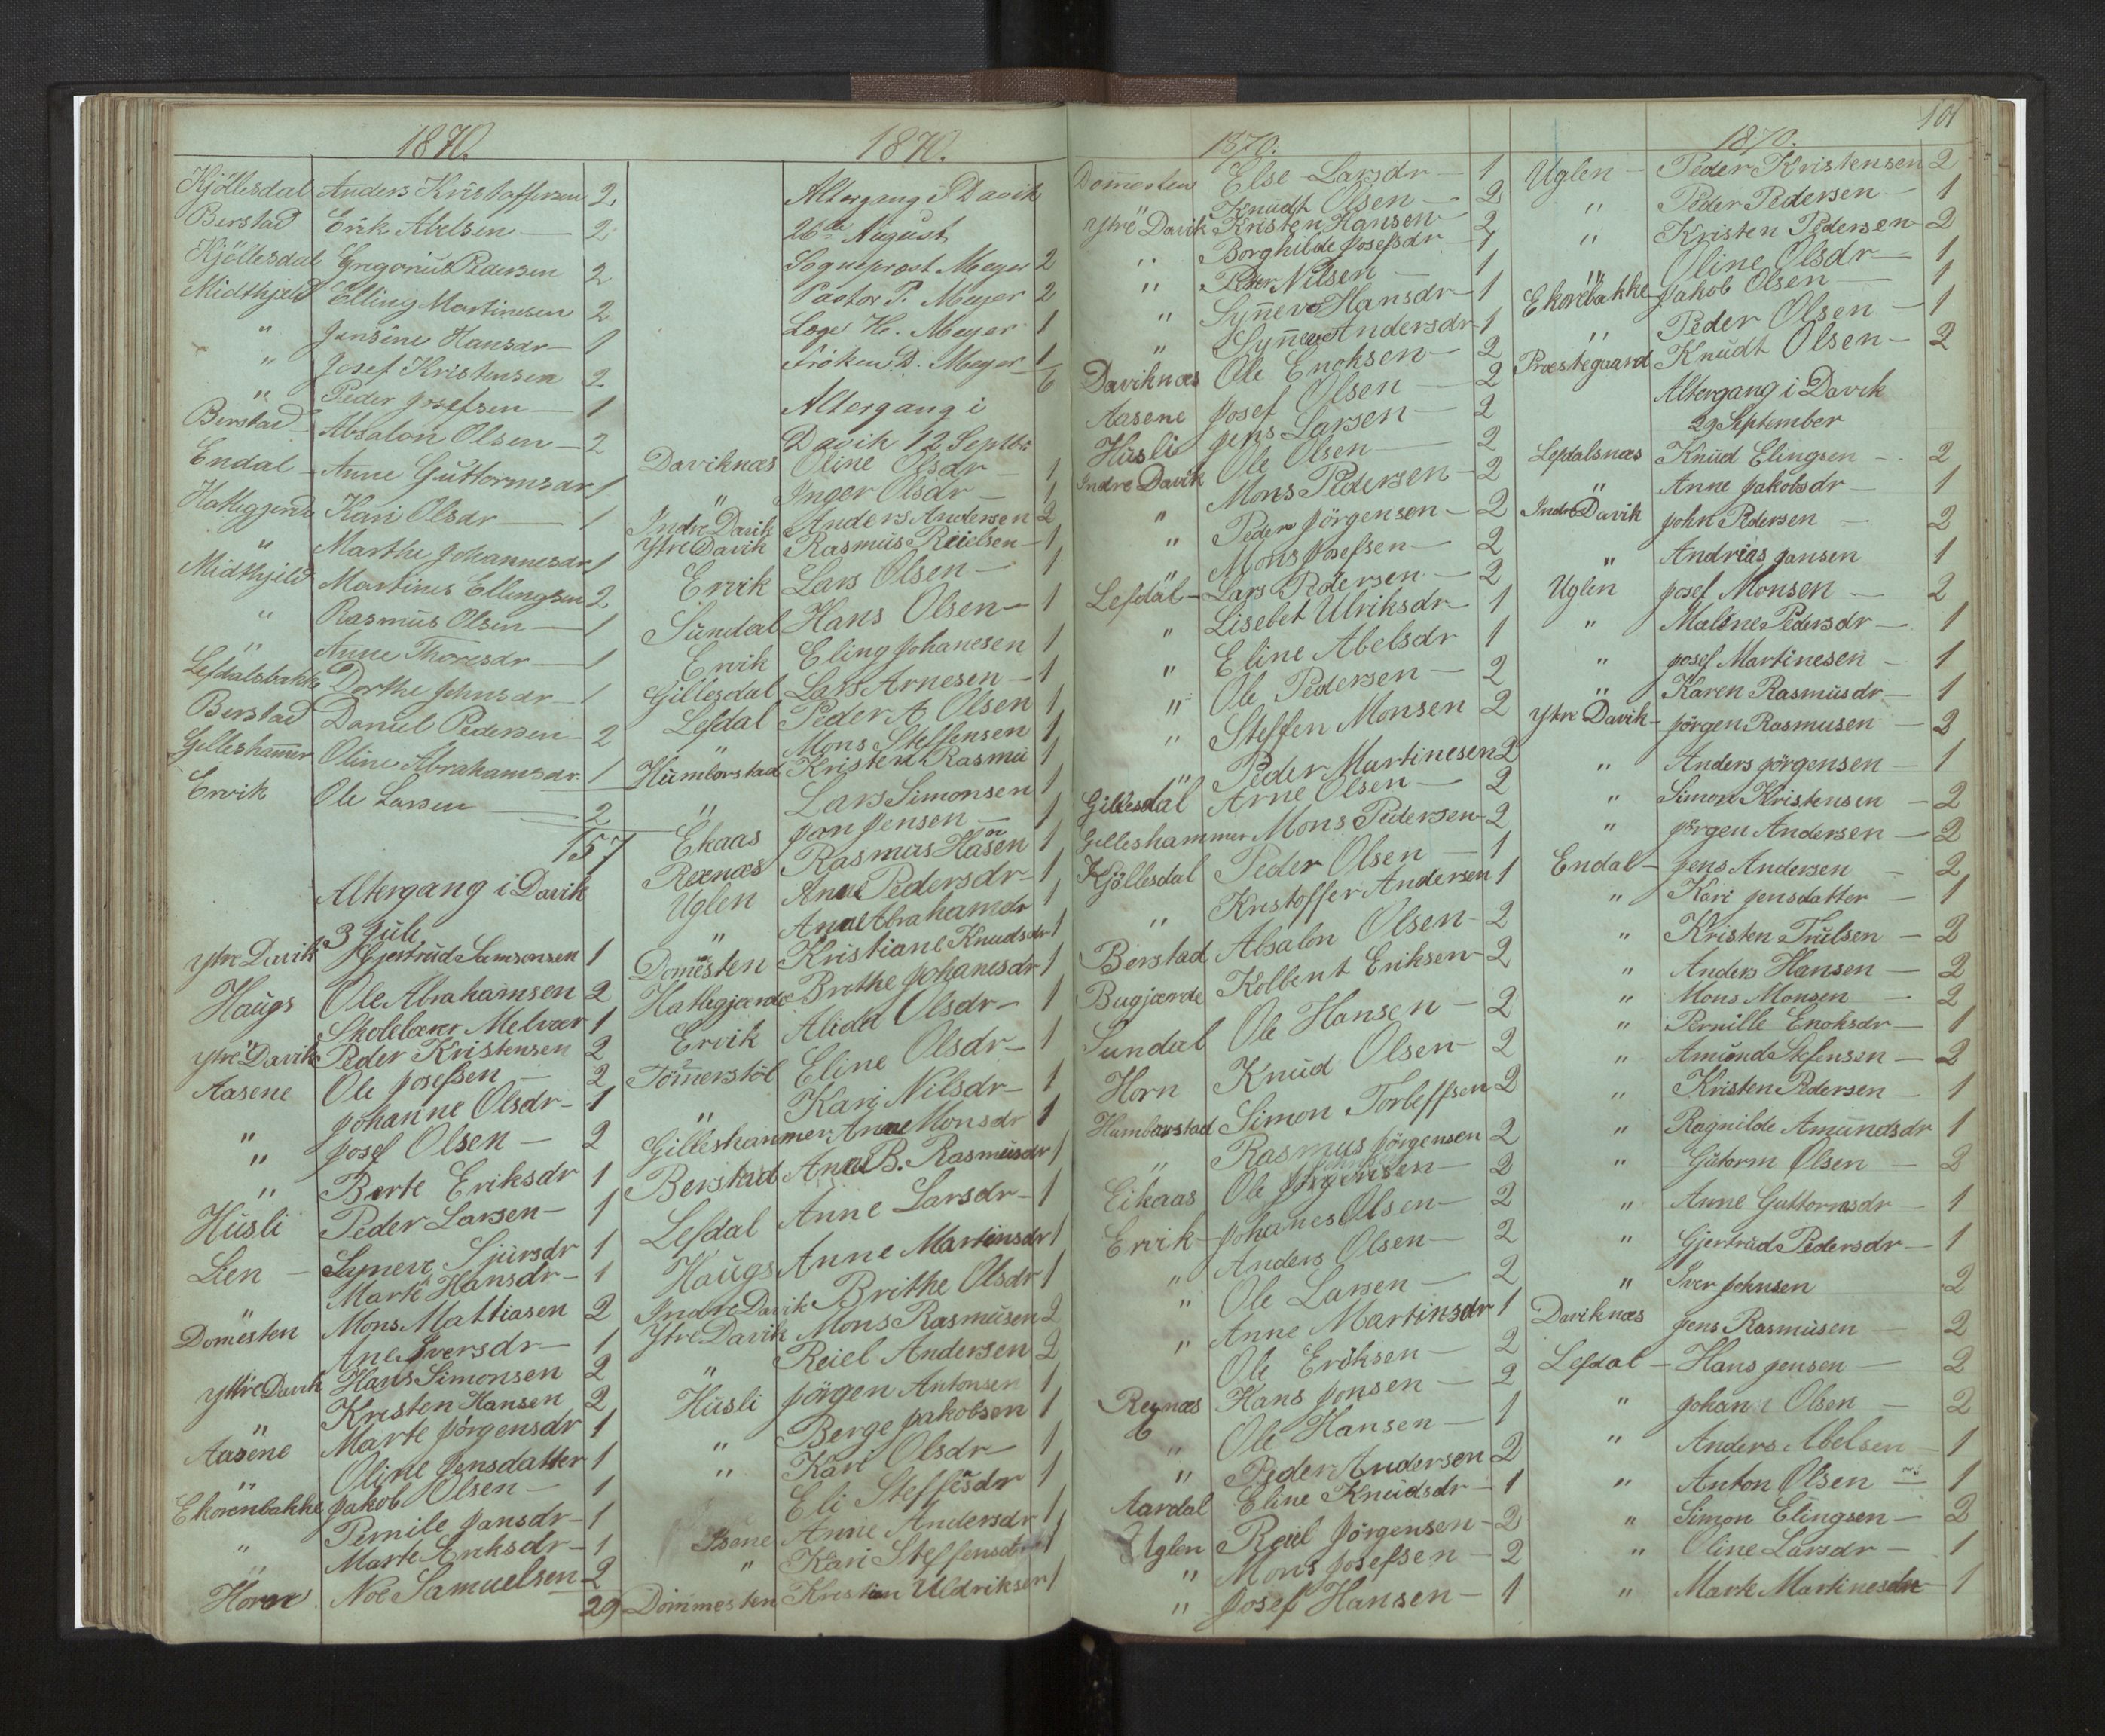 1870.
Kjöllesdal Anders Kristoffersen 2
Berstad Erik Abelsen — 2
Kjöllesdal Gregorius Pedersen 2
Midthjeld Elling Martinesen 2
" Jensine Hansdr — 1
" Josef Kristensen 2
" Peder Josefsen — 1
Berstad Absalon Olsen — 2
Endal — Anne Guttormsdr 1
Hatlegjerde Kari Olsdr — 1
" Marthe Johannesdr 1
Midthjeld Martines Ellingsen 2
" Rasmus Olsen — 1
" Anne Thoresdr — 1
Lefdalsbakke Dorthe Johnsdr — 1
Berstad Daniel Pedersen — 2
Gilleshammer Oline Abrahamsdr. 1
Ervik Ole Larsen — 2
157
Altergang i Davik
3 Juli
Ytre Davik Gjertrud Samsonsen 1
Haugs Ole Abrahamsen 2
Skolelærer Melvær 1
Ytre Davik Peder Kristensen 2
Aasene Ole Josefsen — 2
" Johanne Olsdr — 1
" Josef Olsen — 2
" Berte Eriksdr 1
Husli Peder Larsen — 1
Lien — Synneve Sjursdr 1
" Marte Hansdr — 1
Domesten Mons Mattiasen 2
Ane Iversdr — 1
Ytre Davik Hans Simonsen 2
" Kristen Hansen 2
Aasene Marte Jörgensdr 1
" Oline Jensdatter 1
Ekorenbakke Jakob Olsen — 1
" Pernile Jansdr — 1
" Marte Eriksdr — 1
Horn Noe Samuelsen 2
29
1870.
Altergang i Davik
26de August
Sogneprest Meyer 2
Pastor P. Meyer 2
Læge H. Meyer 1
Fröken D. Meyer 1
6
Altergang i
Davik 12 Septbr
Daviknæs Oline Olsdr — 1
" Inger Olsdr — 1
Indre Davik Anders Andersen 2
Ytre Davik Rasmus Reielsen — 1
Ervik Lars Olsen — 1
Sundal Hans Olsen — 1
Ervik Eling Johanesen 1
Gillesdal Lars Arnesen — 1
Lefdal Peder A Olsen 1
" Mons Steffensen 1
Humborstad Kristen Rasmu 1
" Lars Simonsen 1
Ekaas Jon Jensen — 1
Rexnæs Rasmus Hasen 1
Uglen Ane Pedersdr — 1
" Ane Abrahamdr 1
Domesten Kristiane Knudsdr 1
Hatlegjærde Brithe Johanesdr 1
Ervik Alida Olsdr — 1
Tömmerstöl Eline Olsdr — 1
" Kari Nilsdr — 1
Gilleshammer Anne Monsdr 1
Berstad Ane B. Rasmusdr 1
Lefdal Anne Larsdr — 1
Haugs Anne Martinsdr 1
Indre Davik Brithe Olsdr 1
Ytre Davik Mons Rasmusen 2
" Reiel Andersen 2
Husli Jörgen Antonsen 1
" Berge Jakobsen 1
" Kari Olsdr — 1
Eli Steffesdr 1
Isene Anne Andersdr 1
" Kari Steffensdr 1
Dommesten Kristian Uldriksen 1
1870.
Domesten Else Larsdr — 1
" Knudt Olsen — 2
Ytre Davik Kristen Hansen — 2
" Borghilde Josefsdr — 1
" Peter Nilsen — 1
" Synneve Hansdr — 1
" Synneve Andersdr 1
Daviknæs Ole Enoksen — 2
Aasene Josef Olsen — 2
Husli Jens Larsen — 2
Indre Davik Ole Olsen — 2
" Mons Pedersen — 2
" Peder Jörgensen — 2
" Mons Josefsen — 2
Lefdal — Lars Pedersen — 2
" Lisebet Ulriksdr — 1
" Eline Abelsdr 1
" Ole Pedersen — 2
" Steffen Monsen 2
" Peder Martinesen 2
Gillesdal Arne Olsen — 2
Gilleshammer Mons Pedersen 2
Kjöllesdal Peder Olsen — 1
" Kristoffer Andersen 1
Berstad Absalon Olsen — 2
Bugjærde Kolbent Eriksen — 2
Sundal Ole Hansen — 2
Horn Knud Olsen — 2
Humborstad Simon Torleffsen 2
" Rasmus Jörgensen 2
Eikaas Ole — 2
Ervik — Johanes Olsen — 2
" Anders Olsen — 2
" Ole Larsen — 2
" Anne Martinsdr 1
Ole Eriksen — 2
Reynæs Hans Jonsen — 2
" Ole Hansen — 1
" Peder Andersen 2
Aardal Eline Knudsdr — 1
Uglen Reiel Jörgensen — 2
" Mons Josefsen — 2
" Josef Hansen — 1
101
1870.
Uglen — Peder Kristensen 2
" Peder Pedersen — 1
" Kristen Pedersen — 2
" Oline Olsdr — 1
Ekorebakke Jakob Olsen — 1
" Peder Olsen — 1
Præstegaard Knudt Olsen — 2
Altergang i Davik
29 September
Lefdalsnæs Knud Elingsen — 2
" Anne Jakobsdr — 1
Indre Davik John Pedersen — 2
" Andrias Jansen 1
Uglen Josef Monsen — 2
" Malene Pedersdr — 1
" Josef Martinesen — 1
" Karen Rasmusdr — 1
Ytre Davik — Jörgen Rasmusen — 2
" Anders Jörgensen — 1
" Simon Kristensen — 2
" Jörgen Andersen — 2
Endal — Jens Andersen — 2
" Kari Jensdatter — 1
" Kristen Trulsen — 2
" Anders Hansen — 2
" Mons Monsen — 2
" Pernille Enoksdr — 1
" Amund Stefensen — 2
" Kristen Pedersen — 1
" Ragnilde Amundsdr 1
" Gutorm Olsen — 2
" Anne Guttormsdr — 1
" Gjertrud Pedersdr — 1
" Iver Johnsen 2
Daviknæs Jens Rasmusen — 2
Lefdal — Hans Jensen — 2
" Johan Olsen — 2
" Anders Abelsen — 1
" Anton Olsen — 1
" Simon Elingsen — 2
" Oline Larsdr — 1
" Marte Martinesdr — 1